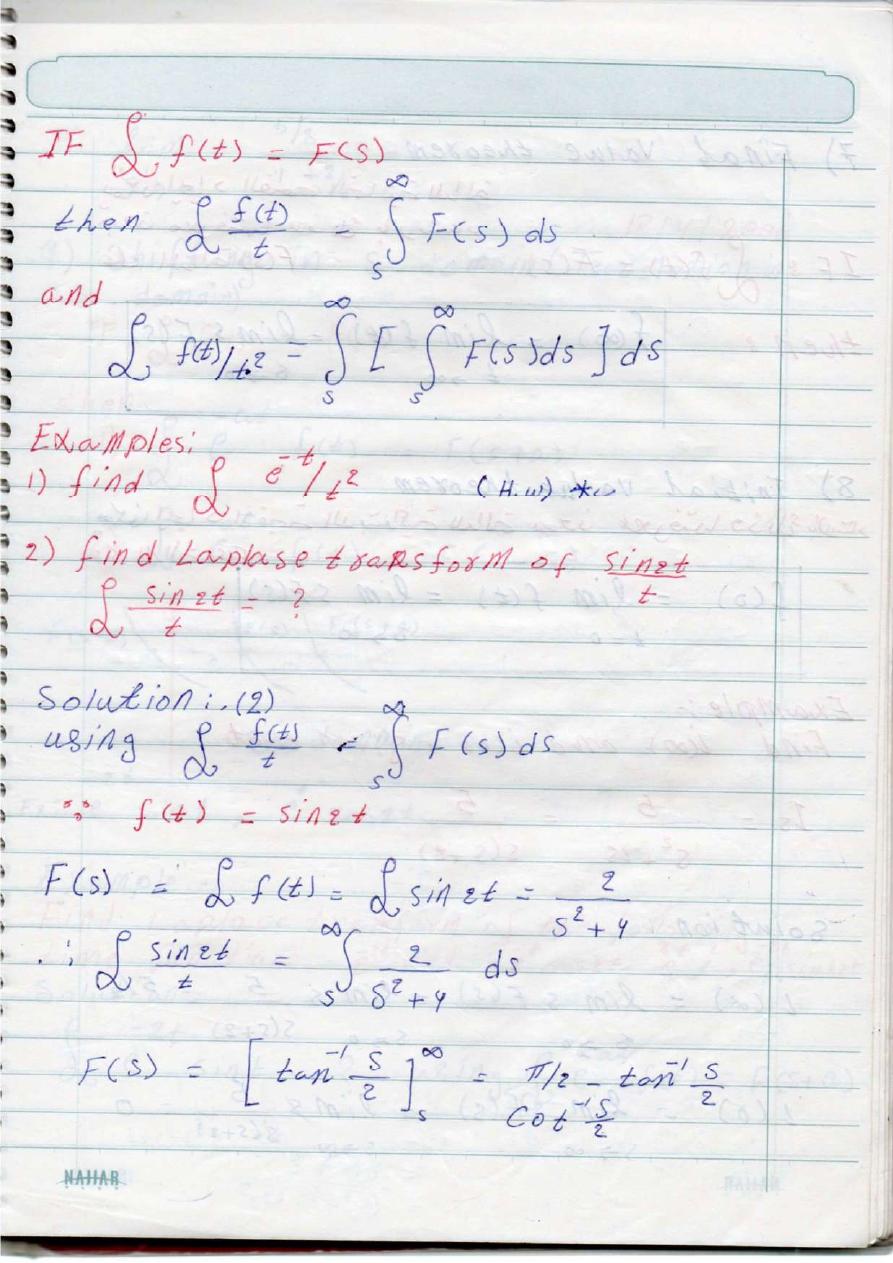 IF ℒ f(t) = F(S)
then ℒ f(t)/t = ∫_s^∞ F(s) ds
and
ℒ f(t)/t² = ∫_s^∞ [ ∫_s^∞ F(s)ds ] ds
Examples:
1) find ℒ e^-t/t² (H.w) *
2) find Laplase transform of sin2t/t
ℒ sin2t/t = ?
Solution:.(2)
using ℒ f(t)/t = ∫_s^∞ F(s) ds
∵ f(t) = sin2t
F(s) = ℒ f(t) = ℒ sin2t = 2/(S²+4)
∴ ℒ sin2t/t = ∫_s^∞ 2/(S²+4) ds
F(s) = [tan⁻¹ S/2]_s^∞ = π/2 - tan⁻¹ S/2
Cot⁻¹ S/2
NAHAR